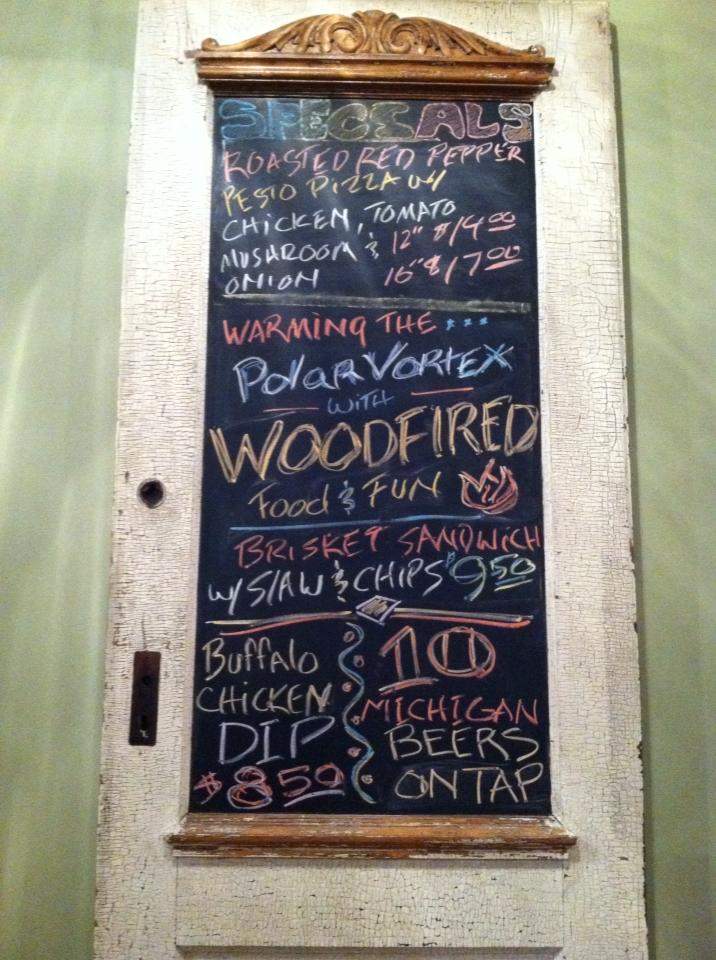 SPECIALS
ROASTED RED PEPPER
PESTO PIZZA W/
CHICKEN, TOMATO
MUSHROOM & 12" $14.00
ONION 16" $17.00
WARMING THE ...
POLAR VORTEX
WITH
WOODFIRED
FOOD & FUN
BRISKET SANDWICH
W/ SLAW & CHIPS $9.50
BUFFALO
CHICKEN
DIP
$8.50
10
MICHIGAN
BEERS
ON TAP